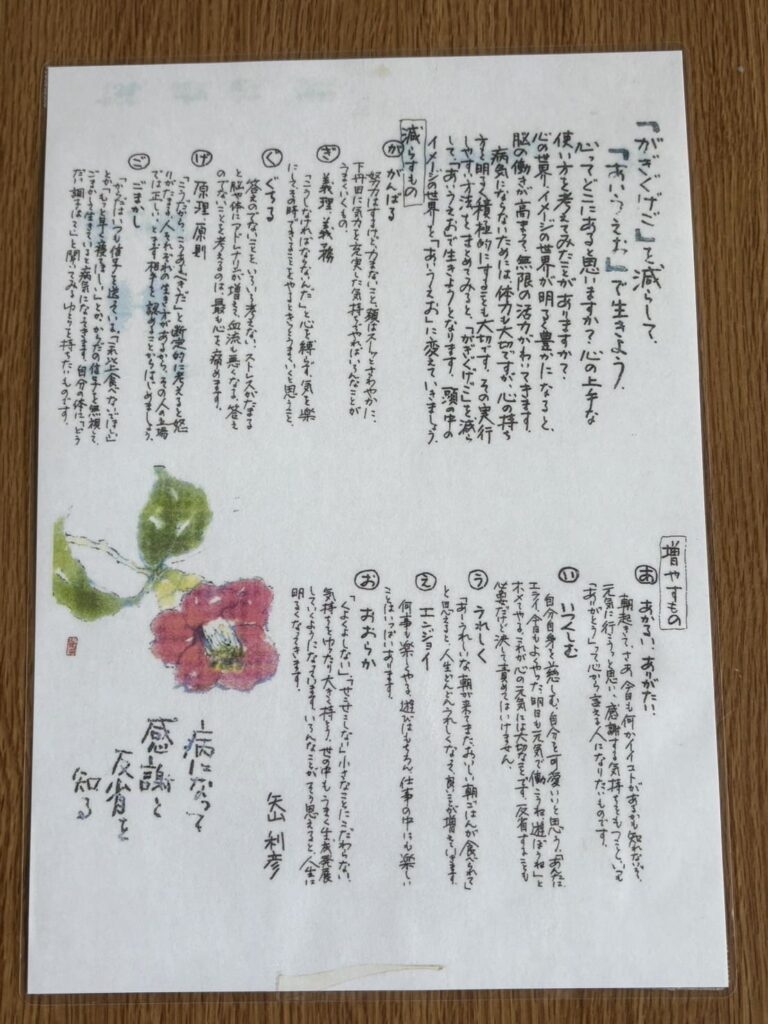 『がぎぐげご』を減らして、
『あいうえお』で生きよう.
心ってどこにあると思いますか？心の上手な
使い方を考えてみたことがありますか？
心の世界、イメージの世界が明るく豊かになると、
脳の働きが高まって、無限の活力がわいてきます.
病気にならないためには体力も大切ですが、心の持ち
方を明るく積極的にすることも大切です。その実行
しやすい方法をまとめてみると、「がぎぐげご」を減ら
して、「あいうえお」で生きようとなります. 頭の中の
イメージの世界を「あいうえお」に変えていきましょう.
減らすもの
が がんばる
努力はするけど力まないこと、頭はスーッとさわやかに、
下丹田に気力を充実した気持ちでやればいろんなことが
うまくいくもの.
ぎ 義理、義務
「こうしなければならないんだ」と心を縛らず、気を楽
にして、その時できることをやるときっとうまくいくと思うこと.
ぐ ぐちる
答えのでないことを、いろいろ考えない. ストレスがたまる
と脳や体にアドレナリンが増えて血流も悪くなる. 答え
のでないことを考えるのは、最も心を痛めます.
げ 原理、原則
「こうだから、こうあるべきだ」と断定的に考えると怒
りがたまる. 人それぞれの生き方があるから、その人の立場
では正しい、とまず相手を認めることからはじめましょう.
ご ごまかし
「からだはいつも信号を送っている。「これ以上食べないでほしい」
とか「もっと早く寝てほしい」とか. からだの信号を無視して、
ごまかして生きていると病気になってきます. 自分の体に「どう
だい調子は？」と聞いてみるゆとりを持ちたいものです.
増やすもの
あ あかるい、ありがたい.
朝起きて、さあ、今日も何かイイコトがあるかも知れないぞ、
元気に行こうっと思い、感謝する気持ちをもつこと. いつも
「ありがとう」って心から言える人になりたいものです.
い いつくしむ
自分自身を慈しむ、自分を可愛いいと思う. 「あんたは
エライ、今日もよくやった、明日も元気で働こうね、遊ぼうね」と
ホメてやる。これが心の元気には大切なことです. 反省することも
必要だけど決して責めてはいけません.
う うれしく
「あーうれしいな、朝が来てまたおいしい朝ごはんが食べられて」
と思えること. 人生どんどんうれしくなって、良いことが増えていきます.
え エンジョイ
何事も楽しくやる. 遊びはもちろん仕事の中にも楽しい
ことはいっぱいあります.
お おおらか
「くよくよしない」「せこせこしない」小さなことにこだわらない.
気持ちをゆったり大きく持とう. 世の中もうまく生成発展
していくようになっています. いろんなことがそう思えると、人生は
明るくなってきます.
矢山 利彦
病になって
感謝と
反省を
知る